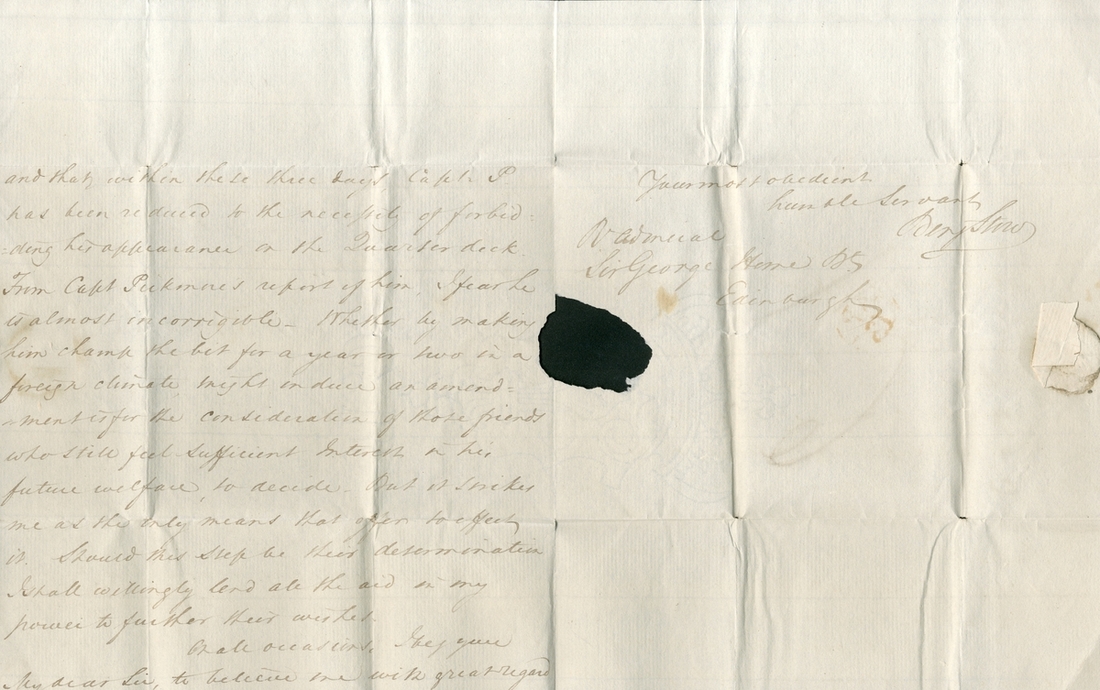 and that, within these three days Capt. P
has been reduced to the necessity of forbid=
=ding his appearance on the Quarter deck.
From Capt Pickmore's report of him, I fear he
is almost incorrigible – Whether by making
him champ the bit for a year or two in a
foreign climate might induce an amend=
=ment is for the consideration of those friends
who still feel sufficient Interest in his
future welfare, to decide. But it strikes
me as the only means that offer to effect
it. Should this step be their determination
I shall willingly lend all the aid in my
power to further their wishes.
On all occasions, I beg you
My dear Sir, to believe me with great regard
Your most obedient
humble Servant
Stow
Rr Admiral
Sir George Home Bt
Edinburgh